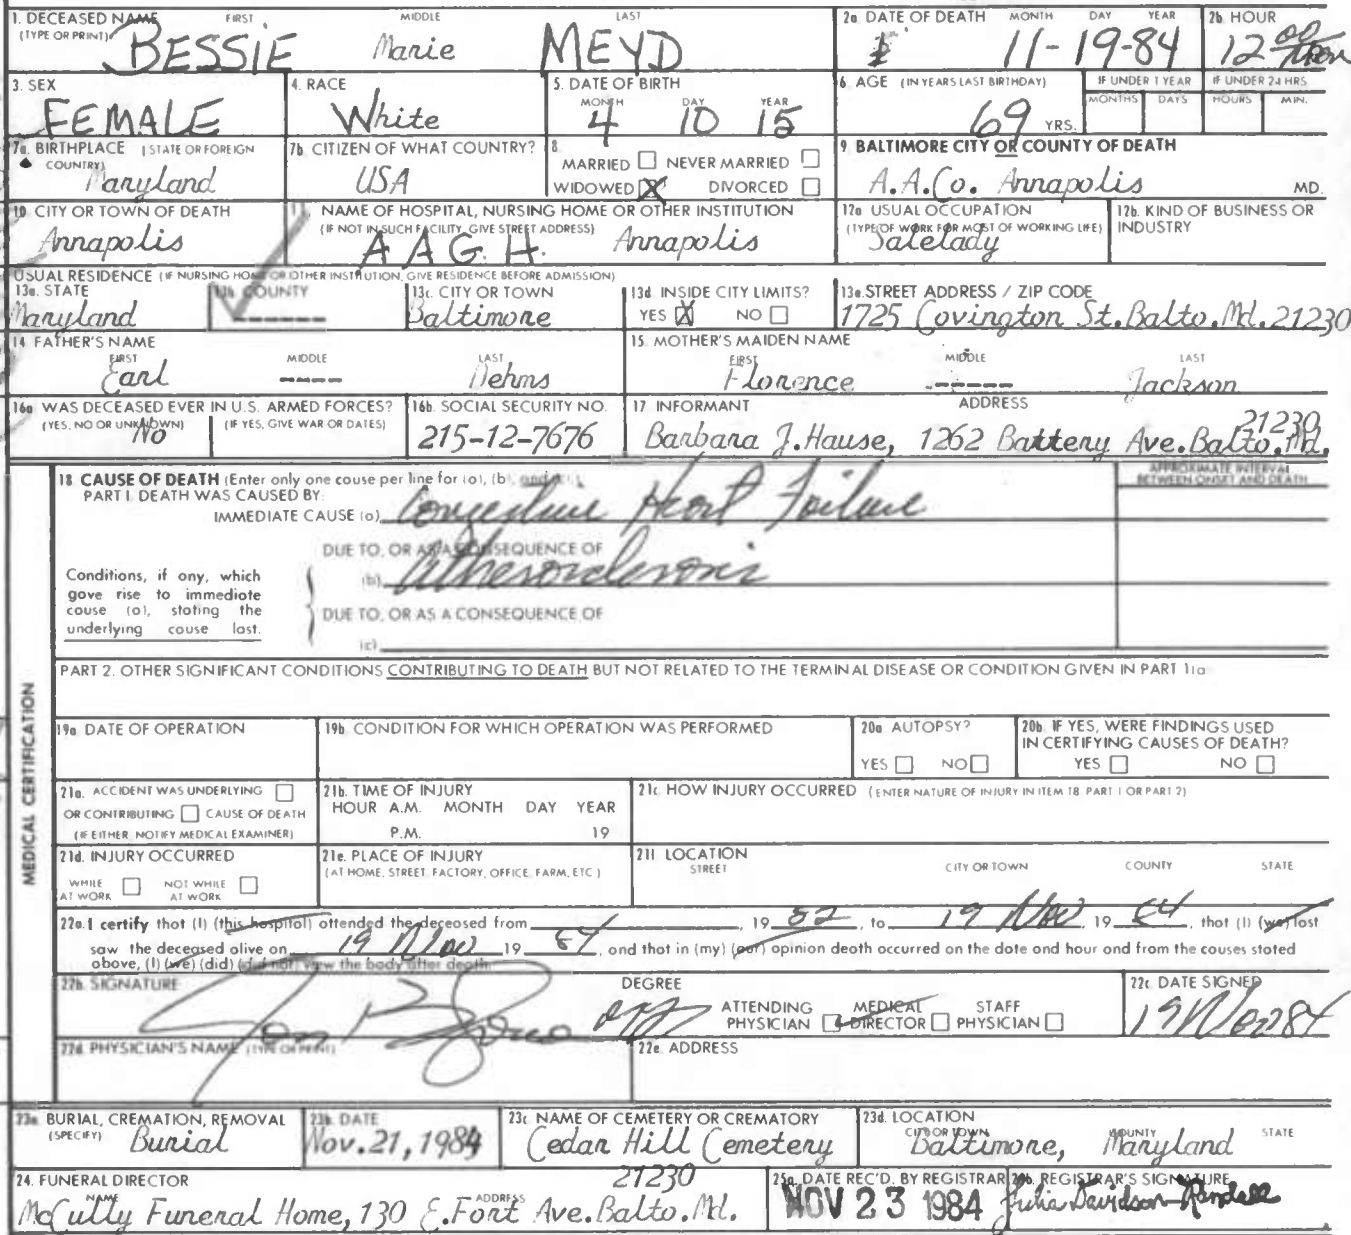 1. DECEASED NAME FIRST MIDDLE LAST
(TYPE OR PRINT) BESSIE Marie MEYD
2a. DATE OF DEATH MONTH DAY YEAR
11-19-84
2b. HOUR
12
3. SEX
FEMALE
4. RACE
White
5. DATE OF BIRTH
MONTH DAY YEAR
4 10 15
6. AGE (IN YEARS LAST BIRTHDAY)
69 YRS.
IF UNDER 1 YEAR
MONTHS DAYS
IF UNDER 24 HRS.
HOURS MIN.
7a. BIRTHPLACE (STATE OR FOREIGN
COUNTRY)
Maryland
7b. CITIZEN OF WHAT COUNTRY?
USA
8.
MARRIED NEVER MARRIED
WIDOWED X DIVORCED
9. BALTIMORE CITY OR COUNTY OF DEATH
A.A.Co. Annapolis MD.
10. CITY OR TOWN OF DEATH
Annapolis
11. NAME OF HOSPITAL, NURSING HOME OR OTHER INSTITUTION
(IF NOT IN SUCH FACILITY, GIVE STREET ADDRESS)
A.A.G.H. Annapolis
12a. USUAL OCCUPATION
(TYPE OF WORK FOR MOST OF WORKING LIFE)
Salelady
12b. KIND OF BUSINESS OR
INDUSTRY
USUAL RESIDENCE (IF NURSING HOME OR OTHER INSTITUTION, GIVE RESIDENCE BEFORE ADMISSION)
13a. STATE
Maryland
13b. COUNTY
------
13c. CITY OR TOWN
Baltimore
13d. INSIDE CITY LIMITS?
YES X NO
13e. STREET ADDRESS / ZIP CODE
1725 Covington St. Balto. Md. 21230
14. FATHER'S NAME
FIRST MIDDLE LAST
Earl ---- Dehms
15. MOTHER'S MAIDEN NAME
FIRST MIDDLE LAST
Florence ----- Jackson
16a. WAS DECEASED EVER IN U.S. ARMED FORCES?
(YES, NO OR UNKNOWN) (IF YES, GIVE WAR OR DATES)
No
16b. SOCIAL SECURITY NO.
215-12-7676
17. INFORMANT ADDRESS
21230
Barbara J. Hause, 1262 Battery Ave. Balto. Md.
MEDICAL CERTIFICATION
18. CAUSE OF DEATH (Enter only one cause per line for (a), (b), and (c).)
PART I. DEATH WAS CAUSED BY:
IMMEDIATE CAUSE (a) Congestive Heart Failure
APPROXIMATE INTERVAL
BETWEEN ONSET AND DEATH
DUE TO, OR AS A CONSEQUENCE OF
(b) Atherosclerosis
Conditions, if any, which
gave rise to immediate
cause (a), stating the
underlying cause last.
DUE TO, OR AS A CONSEQUENCE OF
(c)
PART 2. OTHER SIGNIFICANT CONDITIONS CONTRIBUTING TO DEATH BUT NOT RELATED TO THE TERMINAL DISEASE OR CONDITION GIVEN IN PART 1(a)
19a. DATE OF OPERATION
19b. CONDITION FOR WHICH OPERATION WAS PERFORMED
20a. AUTOPSY?
YES NO
20b. IF YES, WERE FINDINGS USED
IN CERTIFYING CAUSES OF DEATH?
YES NO
21a. ACCIDENT WAS UNDERLYING
OR CONTRIBUTING CAUSE OF DEATH
(IF EITHER, NOTIFY MEDICAL EXAMINER)
21b. TIME OF INJURY
HOUR A.M. MONTH DAY YEAR
P.M. 19
21c. HOW INJURY OCCURRED (ENTER NATURE OF INJURY IN ITEM 18 PART 1 OR PART 2)
21d. INJURY OCCURRED
WHILE AT WORK NOT WHILE AT WORK
21e. PLACE OF INJURY
(AT HOME, STREET, FACTORY, OFFICE, FARM, ETC.)
21f. LOCATION
STREET CITY OR TOWN COUNTY STATE
22a. I certify that (I) (this hospital) attended the deceased from 19 82, to 19 Nov 19 84, that (I) (we) last
saw the deceased alive on 19 Nov 19 84, and that in (my) (our) opinion death occurred on the date and hour and from the causes stated
above, (I) (we) (did) (did not) view the body after death.
22b. SIGNATURE
DEGREE
ATTENDING PHYSICIAN MEDICAL DIRECTOR STAFF PHYSICIAN
22c. DATE SIGNED
19 Nov 84
22d. PHYSICIAN'S NAME (TYPE OR PRINT)
22e. ADDRESS
23a. BURIAL, CREMATION, REMOVAL
(SPECIFY) Burial
23b. DATE
Nov. 21, 1984
23c. NAME OF CEMETERY OR CREMATORY
Cedar Hill Cemetery
23d. LOCATION
CITY OR TOWN COUNTY STATE
Baltimore, Maryland
24. FUNERAL DIRECTOR
21230
NAME ADDRESS
McCully Funeral Home, 130 E. Fort Ave. Balto. Md.
25a. DATE REC'D. BY REGISTRAR
NOV 23 1984
25b. REGISTRAR'S SIGNATURE
Julia Davidson-Randall